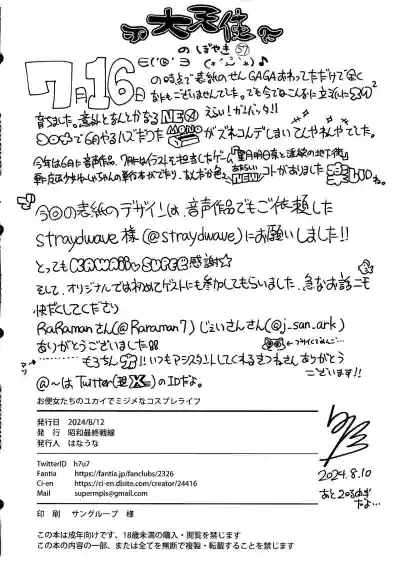 大天使
のつぶやき 57
7月16日の時点で表紙のせんGAGAあわっただけで全く
なにもございませんでした。でも今ではこんなに立派に
育ちました。意外となんとかなるNE♥ えらい!ガンバッタ!!
で6月やるハズだったMONOがズレコンデしまいてんやわんやでした。
今年は6月に音声作品、7月にはイラストも担当したゲーム
コトがおおありました
今回の表紙のデザインは、音声作品でもご依頼した
straydwave様(@straydwave)にお願いしました!!
とってもKAWAii♥SUPER感謝☆
そして、オリジナルでは初めてゲストにも参加してもらいました、急なお話にも
快だくしてくださり
RaRamanさん(@Raraman7)じぇいさんさん(@j_san_ark)
ありがとうございました
もろちん!!いつもアシスタントしてくれるきつねさんありがとう
ございます!!
@〜はTwitter(現X)のIDだよ。
お便女たちのユカイでミジメなコスプレライフ
発行日 2024/8/12
発 行 昭和最終戦線
発行人 はなうな
TwitterID h7u7
Fantia https://fantia.jp/fanclubs/2326
Ci-en https://ci-en.dlsite.com/creator/24416
Mail supermpis@gmail.com
印 刷 サングループ 様
2024.8.10
この本は成年向けです、18歳未満の購入・閲覧を禁じます
この本の内容の一部、または全てを無断で複製・転載することを禁じます